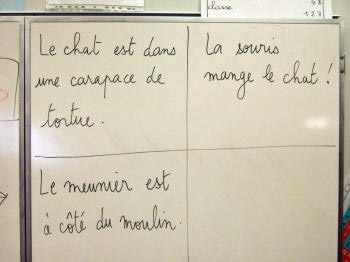 classe
127
Le chat est dans
une carapace de
tortue.
La souris
mange le chat !
Le meunier est
à côté du moulin.